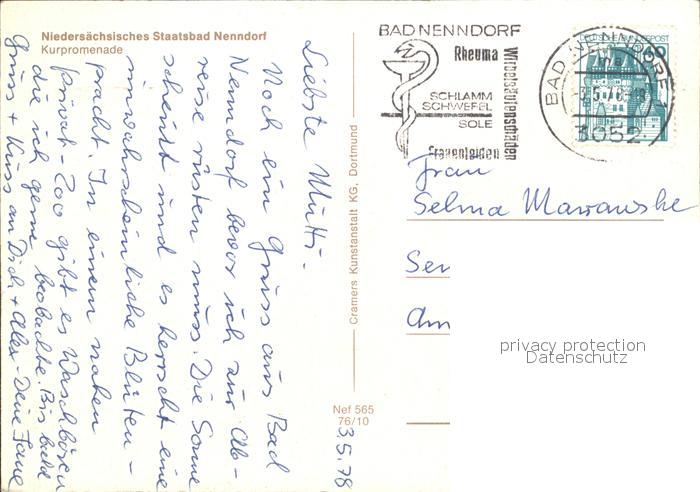 Niedersächsisches Staatsbad Nenndorf
Kurpromenade
Liebste Mutti -
Noch ein Gruss aus Bad
Nenndorf bevor ich zur Ab-
reise rüsten muss. Die Sonne
scheint und es herrscht eine
unwahrscheinliche Blüten-
pracht. In einem nahen
privat-Zoo gibt es Waschbären
die ich gerne beobachte. Bis bald
Gruss + Kuss an Dich + Alex - Deine
3.5.78
Cramers Kunstanstalt KG, Dortmund
Nef 565
76/10
BAD NENNDORF
Rheuma
Wirbelsäulenschäden
SCHLAMM
SCHWEFEL
SOLE
Frauenleiden
DEUTSCHE BUNDESPOST
BAD NENNDORF 1
3052
Frau
Selma
privacy protection
Datenschutz